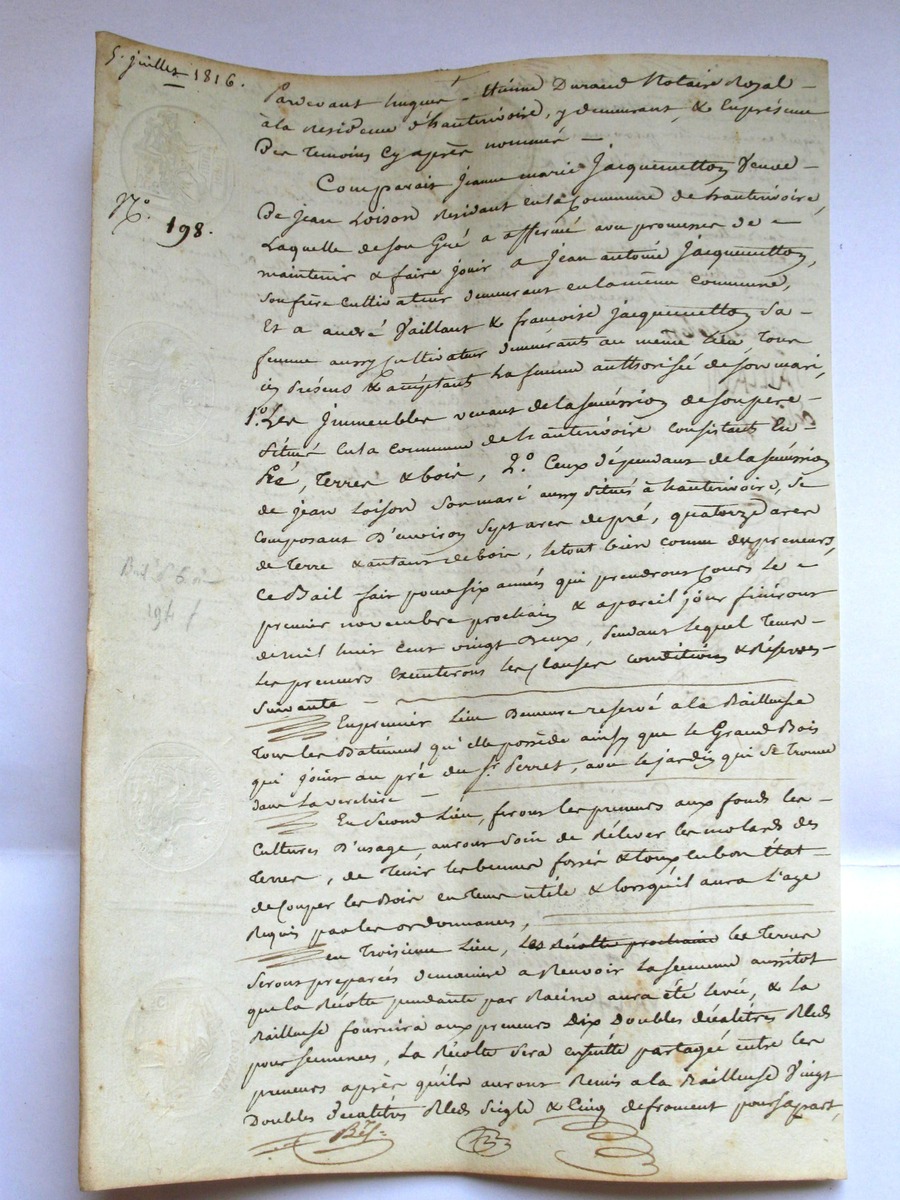 5. juillet 1816.
Pardevant hugues - Etienne Durand Notaire Royal -
à la Residence d'hauterivoire, y demeurant, & En présence
Des Temoins Cy après nommés -
Comparait Jeanne marie Jacquemetton Veuve -
N.º
198.
De jean Loison Résidant en la Commune de hauterivoire,
Laquelle de son Gré a affermé avec promesse de -
maintenir & faire jouir a jean antoine Jacquemetton,
son frère Cultivateur demeurant en la même Commune,
Et a andré Vaillant & francoise jacquemetton Sa -
femme aussy Cultivateur demeurants au même lieu, Tous
ici présens & acceptant la femme authorisée de son mari,
1.º Les Immeubles venant de la succession de son pere -
Situés en la commune de hauterivoire Consistant En -
Pré, Terres & bois, 2.º Ceux dépendant de la succession
de jean Loison Son mari aussy Situés à hauterivoire, Se
Composant D'environ Sept ares de pré, quatorze ares
de Terre & autant de bois, le tout bien connu des preneurs,
Ce Bail fait pour six années qui prendront Cours Le -
premier novembre prochain & a pareil jour finiront
de mil huit Cent vingt Deux, pendant lequel Tems -
Les preneurs Exécuterons les clauses Conditions & Réserves -
Suivante -
En premier Lieu Demeure reservé à la Bailleuse
Tous les Batiments qu'elle possède ainsy que le Grand Bois
qui joint au pré du S.r Perret, avec le jardin qui Se Trouve
dans La verchère -
En Second Lieu, firont les preneurs aux fonds les -
Cultures D'usage, auront Soin de Rélever les molards des
Terres, de Tenir les biennes fossés & toux en bon État -
de Couper les Bois en Tems utile & lorsqu'il aura L'age
Requis par les ordonnances,
en Troisieme Lieu, Les Récolte prochain les Terres
Serons preparés de maniere a Recevoir La Semence aussitot
que la Récolte pendante par Racine aura été levée, & La
Bailleuse fournira aux preneurs Dix Doubles Décalitres Bled
pour semences, La Récolte Sera ensuitte partagée entre les
preneurs après qu'ils auront Remis a la Bailleuse Vingt
Doubles décalitres Bled Seigle & Cinq de froment pour Sa part,